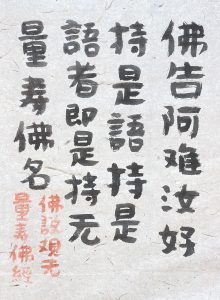 佛告阿难汝好
持是語持是
語者即是持无
量寿佛名
佛說观无
量寿佛經